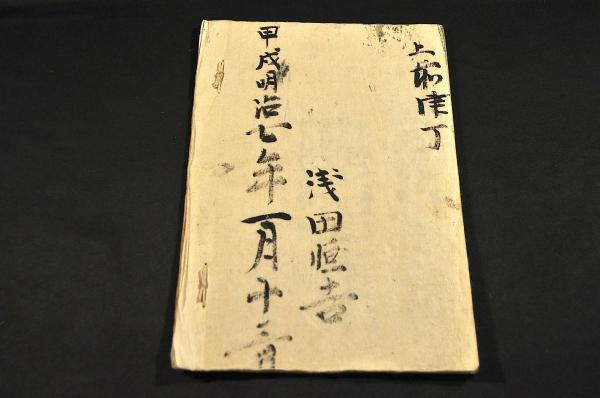 上前津丁
浅田恒吉
甲戌明治七年一月十三日